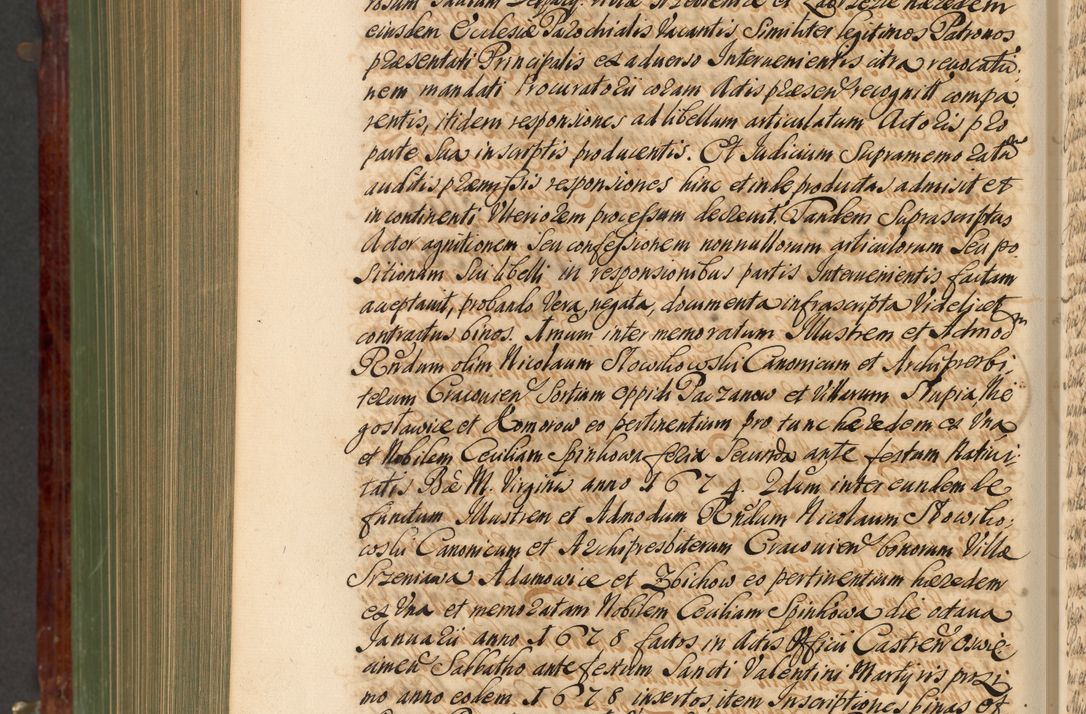 eiusdem Ecclesiæ Parochialis Vacantis Similiter legitimos Patronos
præsentati Principalis ex adverso Intervenientis citra revocatio,
nem mandati Procuratorii coram Actis præsen recognitt compa,
rentis, itidem responsiones ad libellum articulatum Actoris pro
parte Sua in scriptis producentis. Et Iudicium Supramemoratũ
auditis præmissis responsiones hinc et inde productas admisit et
in continenti Vlteriorem processum decrevit. Tandem Suprascriptus
Actor agnitionem Seu confessionem nonnullorum articulorum Seu po
sitionum Seu libelli in responsionibus partis Intervenientis factam
acceptavit, probando Vera, negata, documenta infrascripta Videlicet
contractus binos. Amum inter memoratum Illustrem et Admod
Rndum olim Nicolaum Slowikowski Canonicum et Archipresbi,
terum Cracovien Sortium oppidi Paczanow et Villarum Słupia Nie
gosławice et Komorow eo pertinentium pro tunc hæredem ex Vna
et Nobilem Ceciliam Spinkowa feria Secunda ante festum Nativi,
tatis Bæ M. Virginis anno 1674. 2dum inter eundem de
functum Illustrem et Admodum Rndum Nicolaum Slowiko,
wski Canonicum et Archipresbiterum Cracovien bonorum Villæ
Srzeniawa Adamowice et Zbichow eo pertinentium hæredem
ex Vna et memoratam Nobilem Ceciliam Spinkowa die octava
Ianuarii anno 1678 factos in Actis Officii Castren Oswie
cimen Sabbatho ante festum Sancti Valentini Martyris proxi
mo anno eodem 1678 insertos, item Inscriptiones binas Et